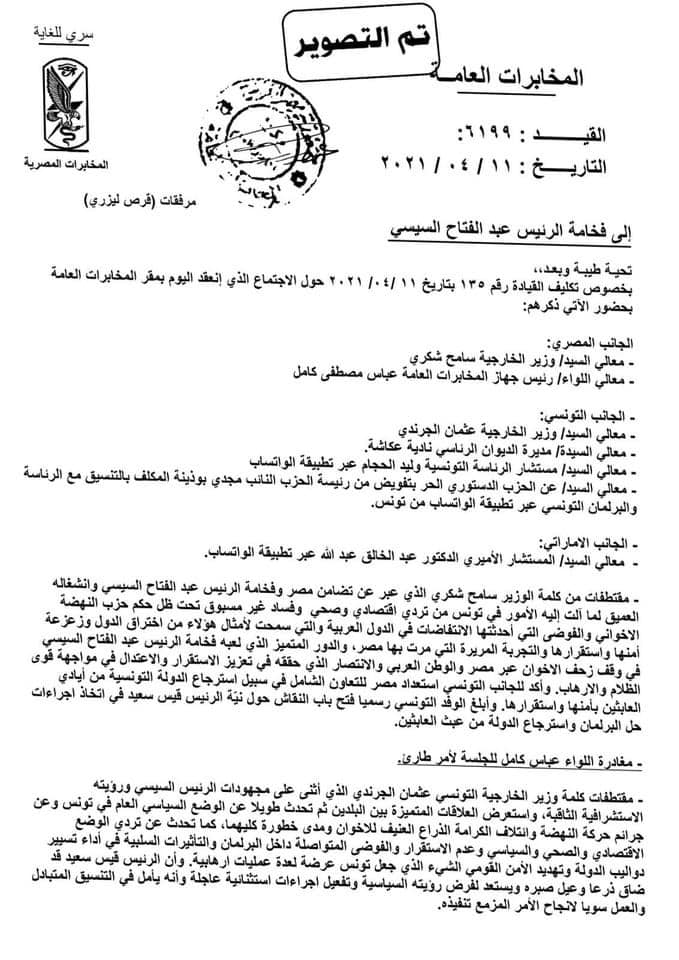 سري للغاية
تم التصوير
المخابرات العامـــة
المخابرات المصرية
القيـــــد : ٦١٩٩:
التاريـــخ : ١١ / ٠٤ / ٢٠٢١
مرفقات (قرص ليزري)
إلى فخامة الرئيس عبد الفتاح السيسي
تحية طيبة وبعد،،
بخصوص تكليف القيادة رقم ١٣٥ بتاريخ ١١ /٠٤/ ٢٠٢١ حول الاجتماع الذي إنعقد اليوم بمقر المخابرات العامة
بحضور الآتي ذكرهم:
الجانب المصري:
- معالي السيد/ وزير الخارجية سامح شكري
- معالي اللواء/ رئيس جهاز المخابرات العامة عباس مصطفى كامل
- الجانب التونسي:
- معالي السيد/ وزير الخارجية عثمان الجرندي
- معالي السيدة/ مديرة الديوان الرئاسي نادية عكاشة.
- معالي السيد/ مستشار الرئاسة التونسية وليد الحجام عبر تطبيقة الواتساب
- معالي السيد/ عن الحزب الدستوري الحر بتفويض من رئيسة الحزب النائب مجدي بوذينة المكلف بالتنسيق مع الرئاسة
والبرلمان التونسي عبر تطبيقة الواتساب من تونس.
- الجانب الاماراتي:
- معالي السيد/ المستشار الأميري الدكتور عبد الخالق عبد الله عبر تطبيقة الواتساب.
- مقتطفات من كلمة الوزير سامح شكري الذي عبر عن تضامن مصر وفخامة الرئيس عبد الفتاح السيسي وانشغاله
العميق لما آلت إليه الأمور في تونس من تردي اقتصادي وصحي وفساد غير مسبوق تحت ظل حكم حزب النهضة
الاخواني والفوضى التي أحدثتها الانتفاضات في الدول العربية والتي سمحت لأمثال هؤلاء من اختراق الدول وزعزعة
أمنها واستقرارها والتجربة المريرة التي مرت بها مصر، والدور المتميز الذي لعبه فخامة الرئيس عبد الفتاح السيسي
في وقف زحف الاخوان عبر مصر والوطن العربي والانتصار الذي حققه في تعزيز الاستقرار والاعتدال في مواجهة قوى
الظلام والارهاب. وأكد للجانب التونسي استعداد مصر للتعاون الشامل في سبيل استرجاع الدولة التونسية من أيادي
العابثين بأمنها واستقرارها. وأبلغ الوفد التونسي رسميا فتح باب النقاش حول نيّة الرئيس قيس سعيد في اتخاذ اجراءات
حل البرلمان واسترجاع الدولة من عبث العابثين.
- مغادرة اللواء عباس كامل للجلسة لأمر طارئ.
- مقتطفات كلمة وزير الخارجية التونسي عثمان الجرندي الذي أثنى على مجهودات الرئيس السيسي ورؤيته
الاستشرافية الثاقبة، واستعرض العلاقات المتميزة بين البلدين ثم تحدث طويلا عن الوضع السياسي العام في تونس وعن
جرائم حركة النهضة وائتلاف الكرامة الذراع العنيف للاخوان ومدى خطورة كليهما، كما تحدث عن تردي الوضع
الاقتصادي والصحي والسياسي وعدم الاستقرار والفوضى المتواصلة داخل البرلمان والتأثيرات السلبية في أداء تسيير
دواليب الدولة وتهديد الأمن القومي الشيء الذي جعل تونس عرضة لعدة عمليات ارهابية. وأن الرئيس قيس سعيد قد
ضاق ذرعا وعيل صبره ويستعد لفرض رؤيته السياسية وتفعيل اجراءات استثنائية عاجلة وأنه يأمل في التنسيق المتبادل
والعمل سويا لانجاح الأمر المزمع تنفيذه.